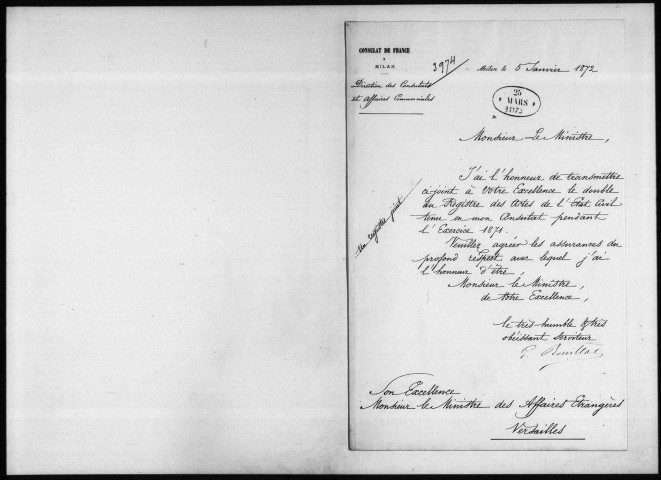 CONSULAT DE FRANCE
à
MILAN
3974
Milan le 5 Janvier 1872
Direction des Consulats
et Affaires Commerciales
25
MARS
1872
Monsieur Le Ministre,
J'ai l'honneur de transmettre
ci-joint à Votre Excellence le double
du Registre des Actes de l'Etat Civil
tenu en mon Consulat pendant
l'Exercice 1871.
Un registre joint
Veuillez agréer les assurances du
profond respect avec lequel j'ai
l'honneur d'être,
Monsieur le Ministre,
de Votre Excellence,
le très humble & très
obéissant serviteur
Son Excellence
Monsieur le Ministre des Affaires Etrangères
Versailles